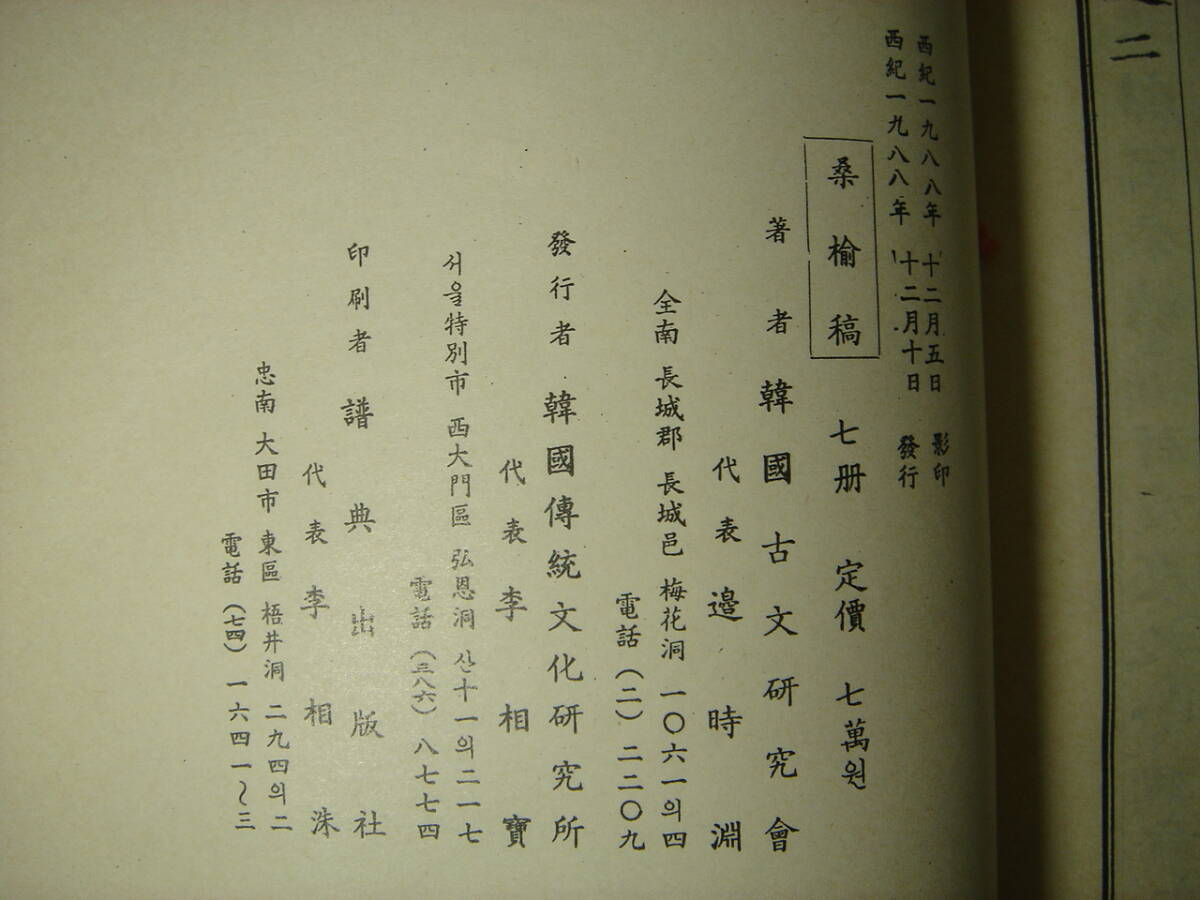 二
西紀一九八八年 十二月五日 影印
西紀一九八八年 十二月十日 發行
桑榆稿 七册 定價 七萬원
著者 韓國古文研究會
代表 邊時淵
全南 長城郡 長城邑 梅花洞 一〇六一의四
電話 (二) 二二〇九
發行者 韓國傳統文化研究所
代表 李相寶
서울特別市 西大門區 弘恩洞 산十一의二一七
電話 (三八六) 八七七四
印刷者 譜典出版社
代表 李相洙
忠南 大田市 東區 梧井洞 二九四의二
電話 (七四) 一六四一~三